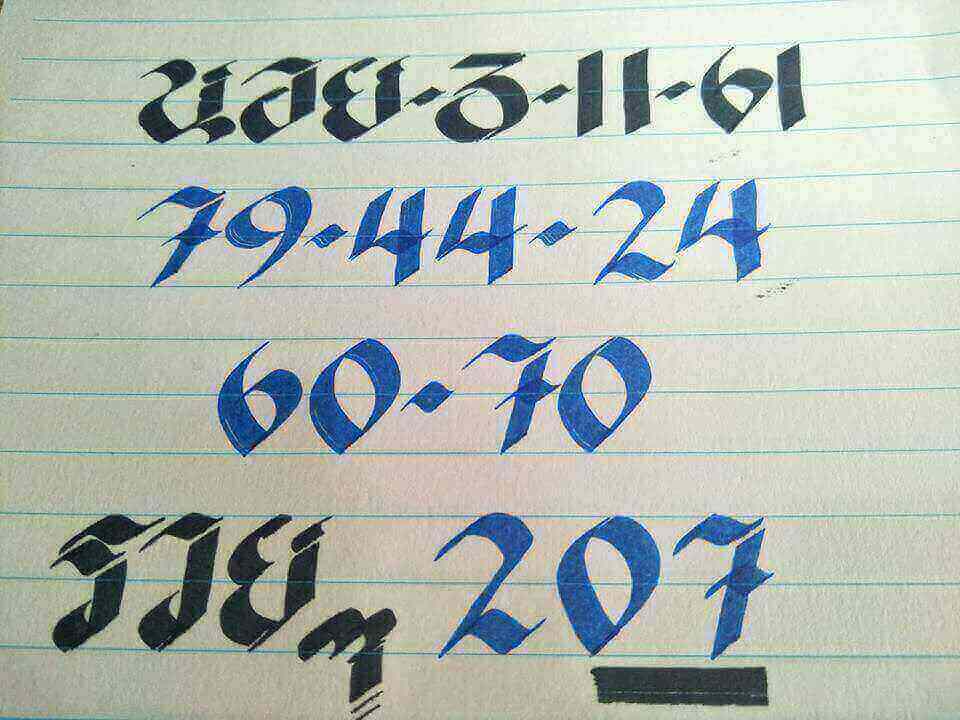 ฆวย-3-11-61
79-44-24
60-70
รวยๆ 207